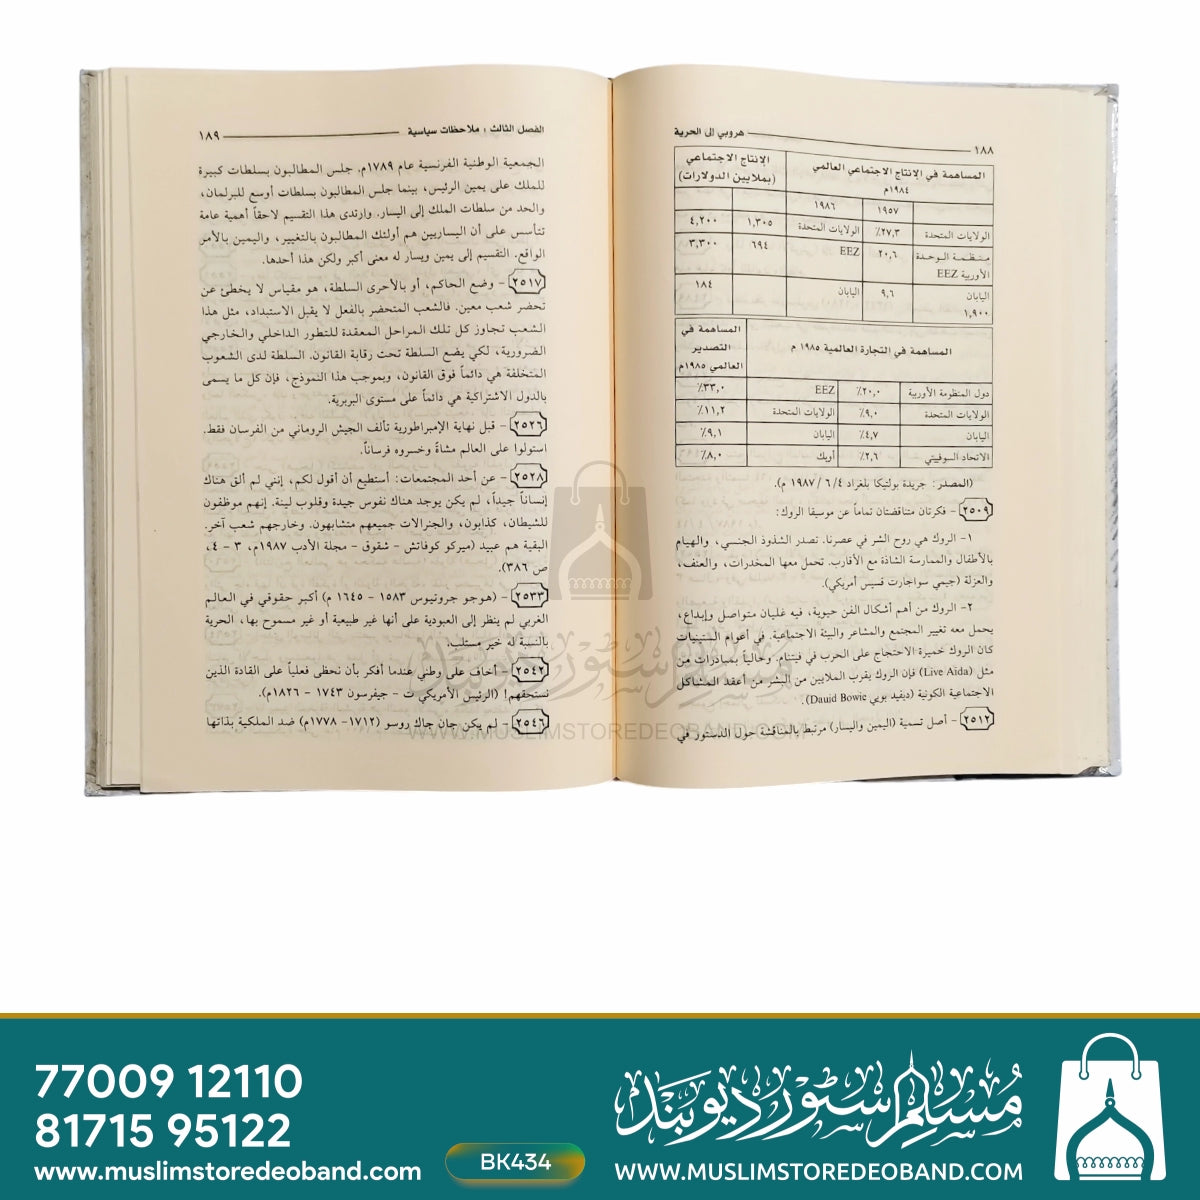 هروبي الى الحرية
١٨٨
المساهمة في الإنتاج الاجتماعي العالمي ١٩٨٤م
الإنتاج الاجتماعي (بملايين الدولارات)
١٩٥٧
١٩٨٦
الولايات المتحدة ٢٧,٣٪ الولايات المتحدة ١,٣٠٥ ٤,٢٠٠
منظمة الوحدة الأوربية EEZ ٢٠,٦ EEZ ٦٩٤ ٣,٣٠٠
اليابان ١,٩٠٠ ٩,٦ اليابان ١٨٤
المساهمة في التجارة العالمية ١٩٨٥ م
المساهمة في التصدير العالمي ١٩٨٥م
دول المنظومة الأوربية ٢٠,٠٪ EEZ ٣٣,٠٪
الولايات المتحدة ٩,٠٪ الولايات المتحدة ١١,٢٪
اليابان ٤,٧٪ اليابان ٩,١٪
الاتحاد السوفيتي ٢,٦٪ أوبك ٨,٠٪
(المصدر : جريدة بولتيكا بلغراد ٤/ ٦ / ١٩٨٧ م).
٢٥٠٩ – فكرتان متناقضتان تماماً عن موسيقا الروك:
١– الروك هي روح الشر في عصرنا. تصدر الشذوذ الجنسي، والهيام
بالأطفال والممارسة الشاذة مع الأقارب. تحمل معها المخدرات، والعنف،
والعزلة (جيمي سواجارت قسيس أمريكي).
٢– الروك من أهم أشكال الفن حيوية، فيه غليان متواصل وإبداع،
يحمل معه تغيير المجتمع والمشاعر والبيئة الاجتماعية. في أعوام الستينيات
كان الروك خميرة الاحتجاج على الحرب في فيتنام. وحالياً بمبادرات من
مثل (Live Aida) فإن الروك يقرب الملايين من البشر من أعقد المشاكل
الاجتماعية الكونية (ديفيد بويي Dauid Bowie).
٢٥١٢ – أصل تسمية (اليمين واليسار) مرتبط بالمناقشة حول الدستور في
الفصل الثالث : ملاحظات سياسية
١٨٩
الجمعية الوطنية الفرنسية عام ١٧٨٩م. جلس المطالبون بسلطات كبيرة
للملك على يمين الرئيس، بينما جلس المطالبون بسلطات أوسع للبرلمان،
والحد من سلطات الملك إلى اليسار. وارتدى هذا التقسيم لاحقاً أهمية عامة
تتأسس على أن اليساريين هم أولئك المطالبون بالتغيير، واليمين بالأمر
الواقع. التقسيم إلى يمين ويسار له معنى أكبر ولكن هذا أحدها.
٢٥١٧ – وضع الحاكم، أو بالأحرى السلطة، هو مقياس لا يخطئ عن
تحضر شعب معين. فالشعب المتحضر بالفعل لا يقبل الاستبداد، مثل هذا
الشعب تجاوز كل تلك المراحل المعقدة للتطور الداخلي والخارجي
الضرورية، لكي يضع السلطة تحت رقابة القانون. السلطة لدى الشعوب
المتخلفة هي دائماً فوق القانون، وبموجب هذا النموذج، فإن كل ما يسمى
بالدول الاشتراكية هي دائماً على مستوى البربرية.
٢٥٢٦ – قبل نهاية الإمبراطورية تألف الجيش الروماني من الفرسان فقط.
استولوا على العالم مشاةً وخسروه فرساناً.
٢٥٢٨ – عن أحد المجتمعات: أستطيع أن أقول لكم، إنني لم ألق هناك
إنساناً جيداً، لم يكن يوجد هناك نفوس جيدة وقلوب لينة. إنهم موظفون
للشيطان، كذابون، والجنرالات جميعهم متشابهون. وخارجهم شعب آخر.
البقية هم عبيد (ميركو كوفاتش – شقوق – مجلة الأدب ١٩٨٧م، ٣ – ٤،
ص ٣٨٦).
٢٥٣٣ – (هوجو جروتيوس ١٥٨٣ – ١٦٤٥ م) أكبر حقوقي في العالم
الغربي لم ينظر إلى العبودية على أنها غير طبيعية أو غير مسموح بها، الحرية
بالنسبة له خير مستلب.
٢٥٤٢ – أخاف على وطني عندما أفكر بأن نحظى فعلياً على القادة الذين
نستحقهم! (الرئيس الأمريكي ت – جيفرسون ١٧٤٣ – ١٨٢٦م).
٢٥٤٦ – لم يكن جان جاك روسو (١٧١٢– ١٧٧٨م) ضد الملكية بذاتها
مسلم سٹور دیوبند
WWW.MUSLIMSTOREDEOBAND.COM
77009 12110
81715 95122
www.muslimstoredeoband.com
BK434
مسلم سٹور دیوبند
WWW.MUSLIMSTOREDEOBAND.COM